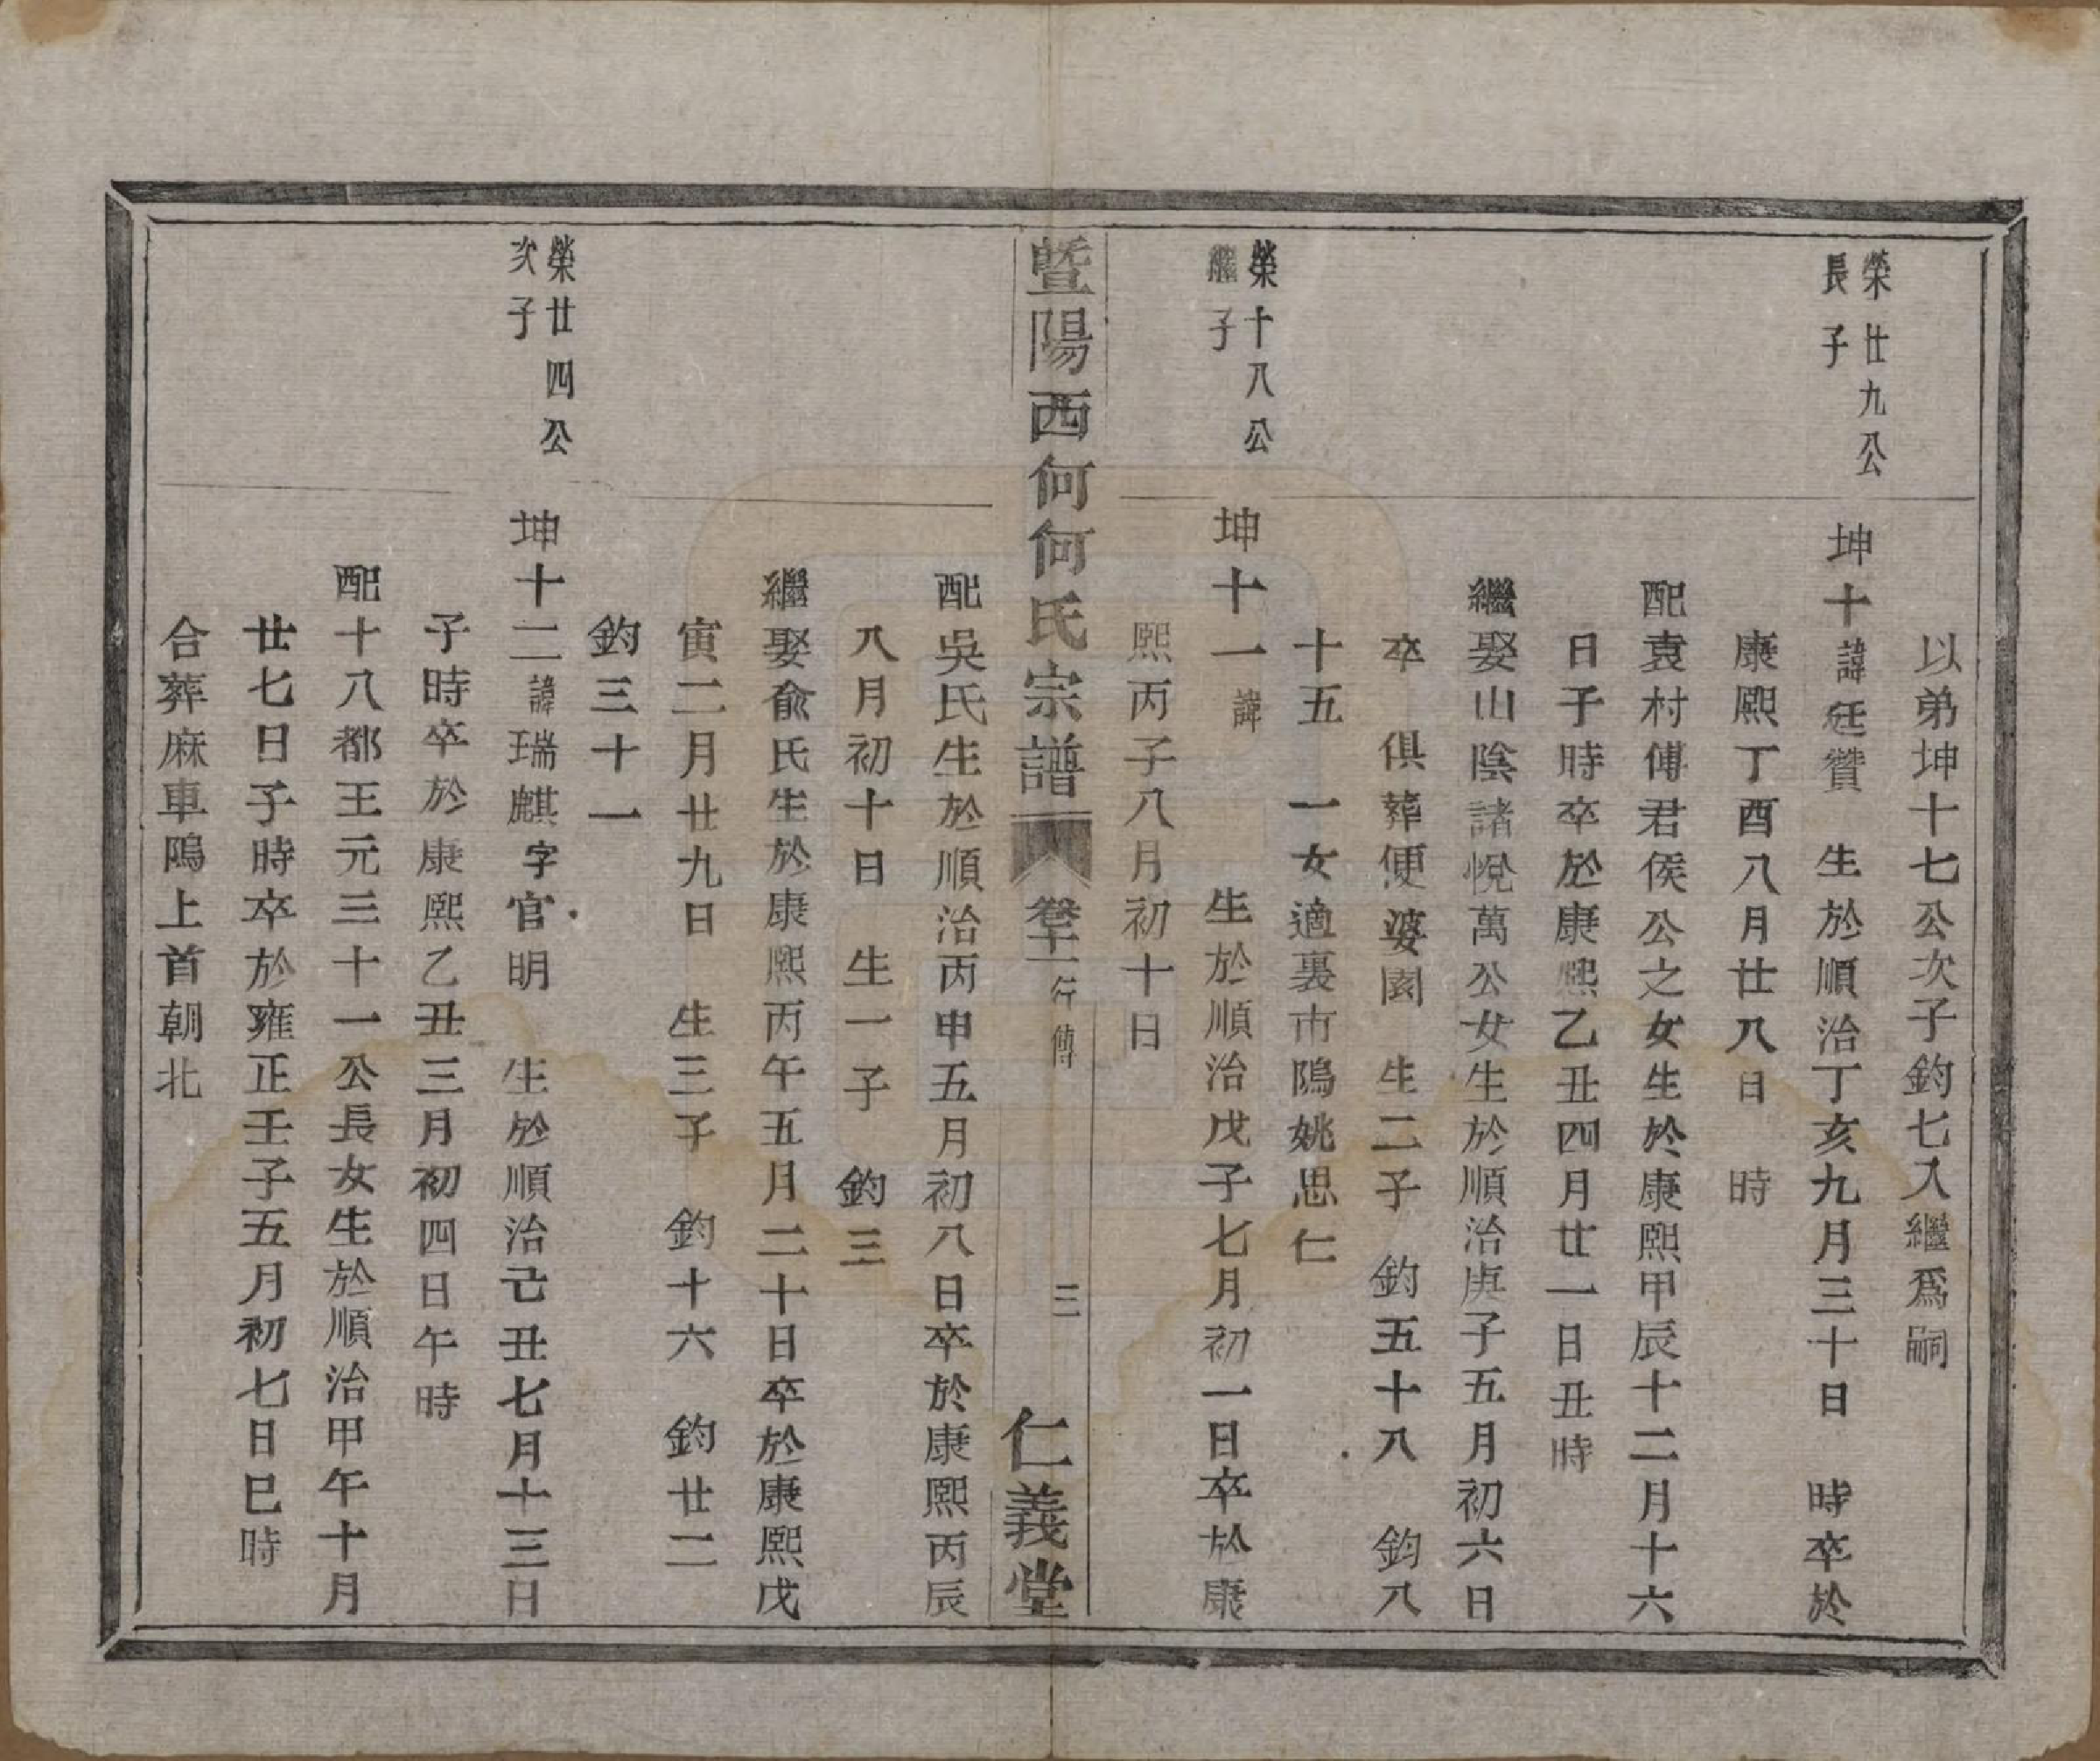 以弟坤十七公次子鈞七入繼爲嗣
榮廿九公
長子
坤十諱廷贊　生於順治丁亥九月三十日　時卒於
康熙丁酉八月廿八日　時
配袁村傅君侯公之女生於康熙甲辰十二月十六
日子時卒於康熙乙丑四月廿一日丑時
繼娶山陰諸悅萬公女生於順治庚子五月初六日
卒　俱葬便婆園　生二子　鈞五十八　鈞八
十五　一女適裏市隖姚思仁
榮十八公
繼子
坤十一諱　　生於順治戊子七月初一日卒於康
熙丙子八月初十日
暨陽西何何氏宗譜　卷十一　行傳　三　仁義堂
配吳氏生於順治丙申五月初八日卒於康熙丙辰
八月初十日　生一子　鈞三
繼娶俞氏生於康熙丙午五月二十日卒於康熙戊
寅二月廿九日　生三子　鈞十六　鈞廿二
鈞三十一
榮廿四公
次子
坤十二諱瑞麒字官明　生於順治己丑七月十三日
子時卒於康熙乙丑三月初四日午時
配十八都王元三十一公長女生於順治甲午十月
廿七日子時卒於雍正壬子五月初七日巳時
合葬麻車隖上首朝北